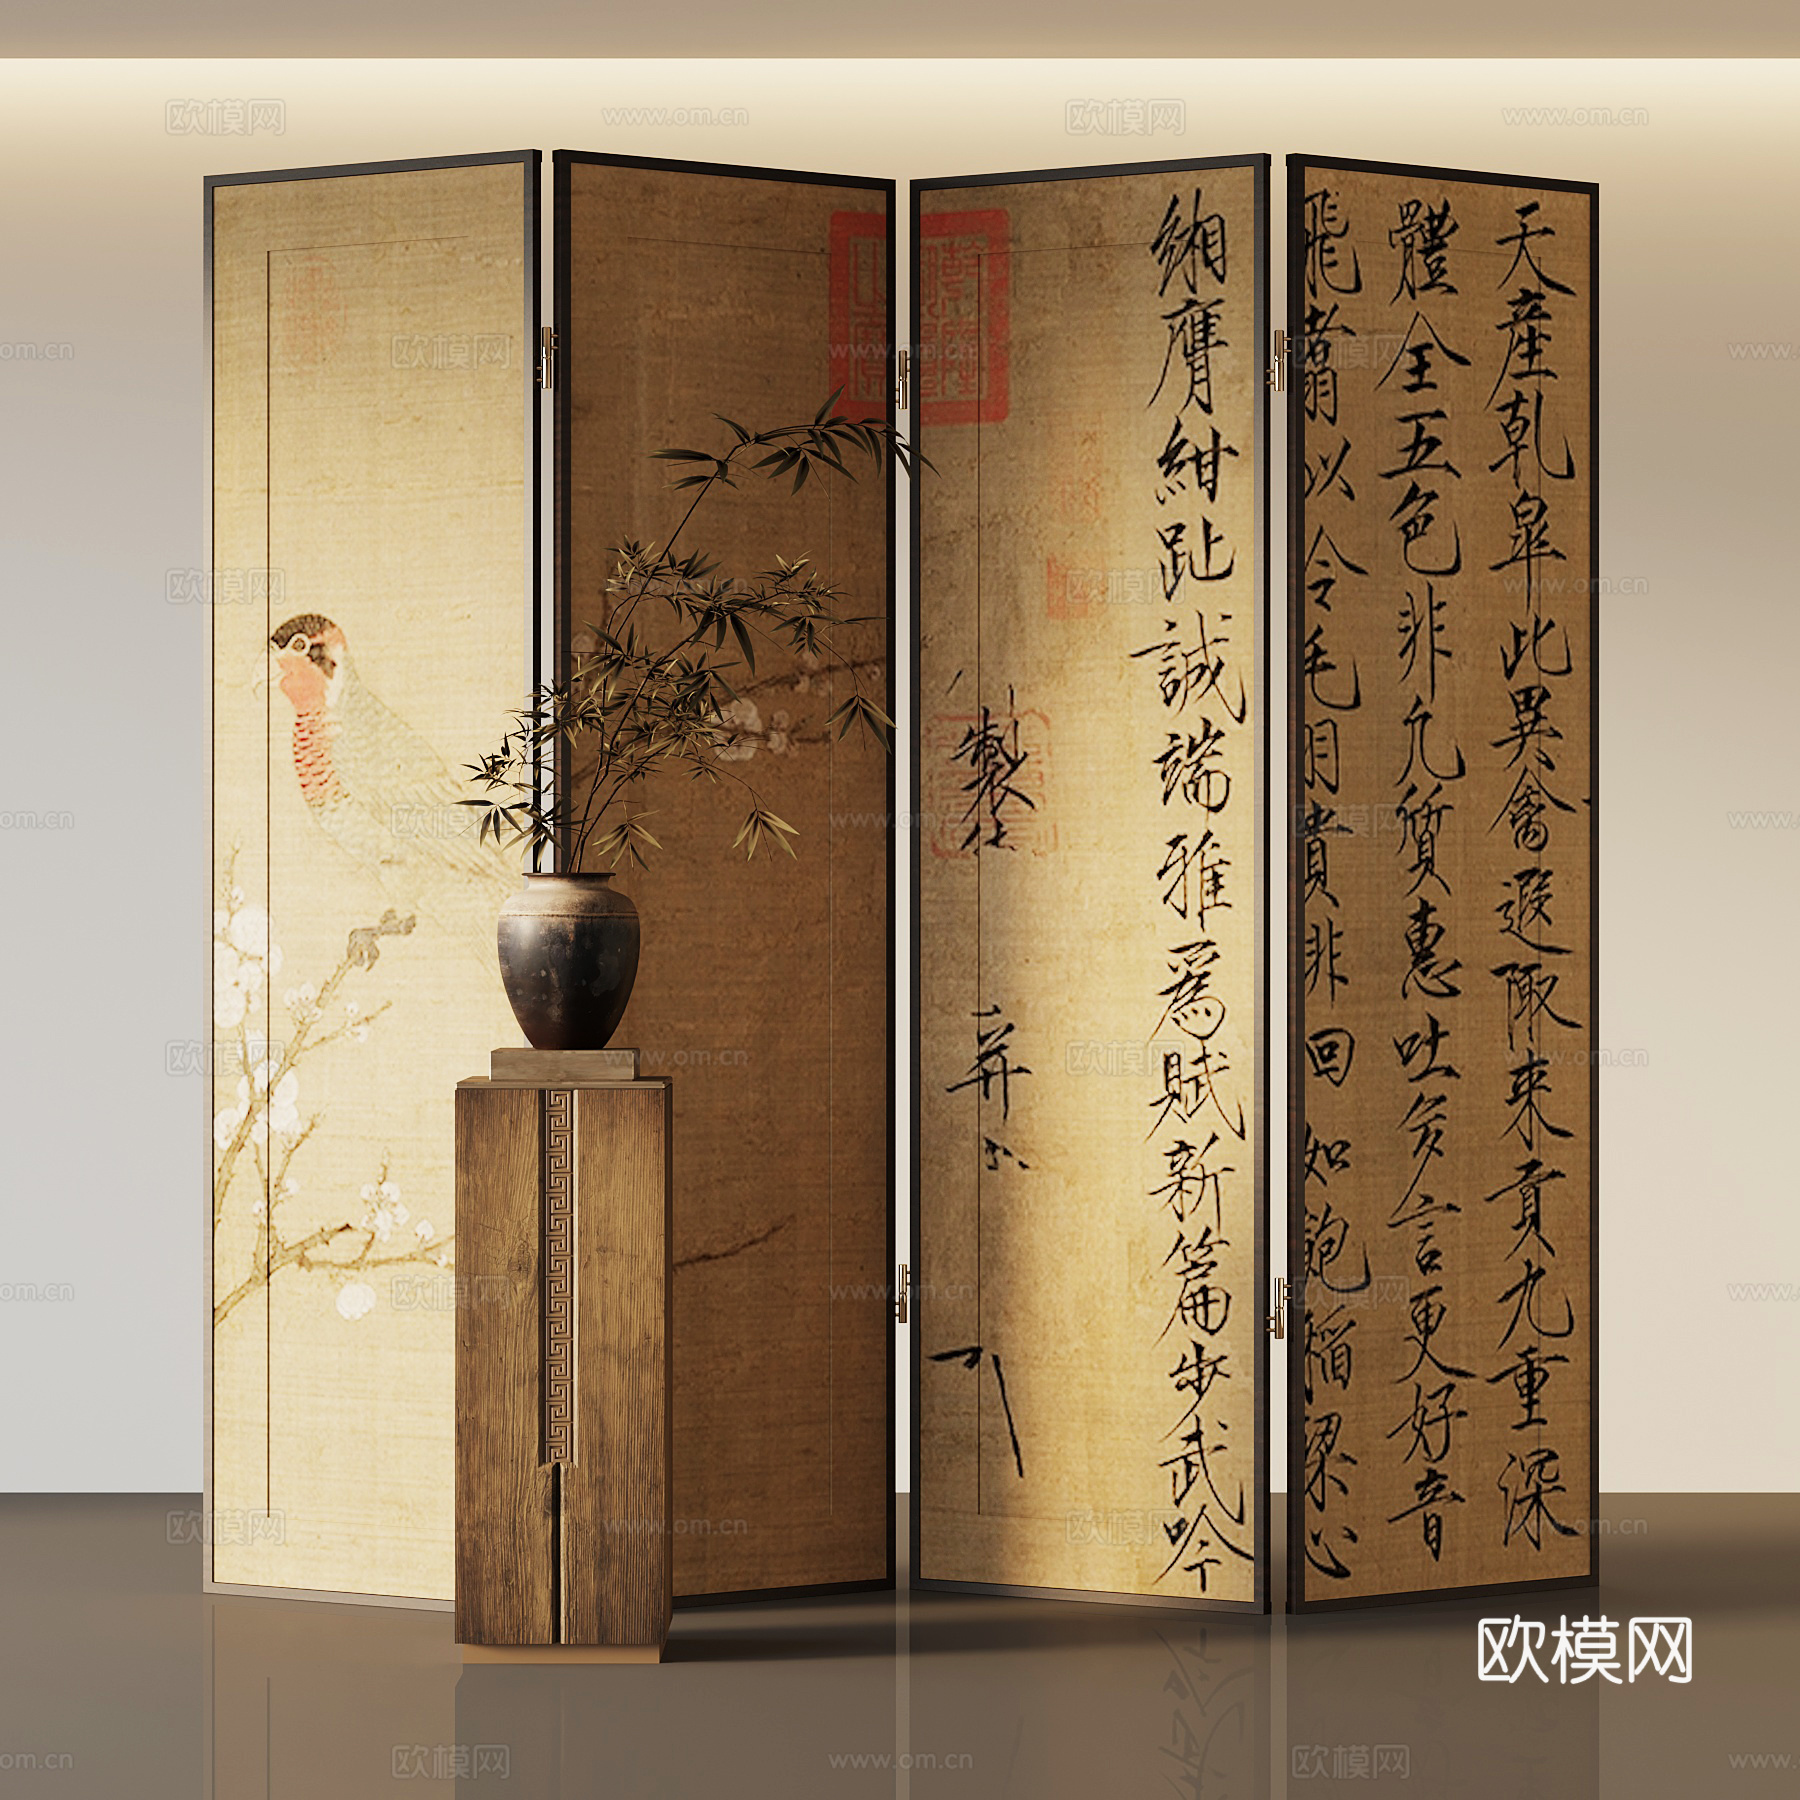 天產乾皐此異禽遐陬來貢九重深
體全五色非凡質惠吐多言更好音
飛翥以令毛羽貴非回如飽稻粱心
緗膺紺趾誠端雅爲賦新篇步武吟
製
弄
欧模网
www.om.cn